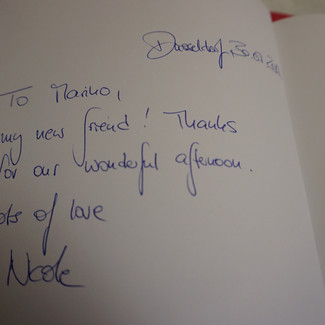 Düsseldorf, 30.07.
To Marino,
my new friend! Thanks
for our wonderful afternoon.
ots of love
Nicole